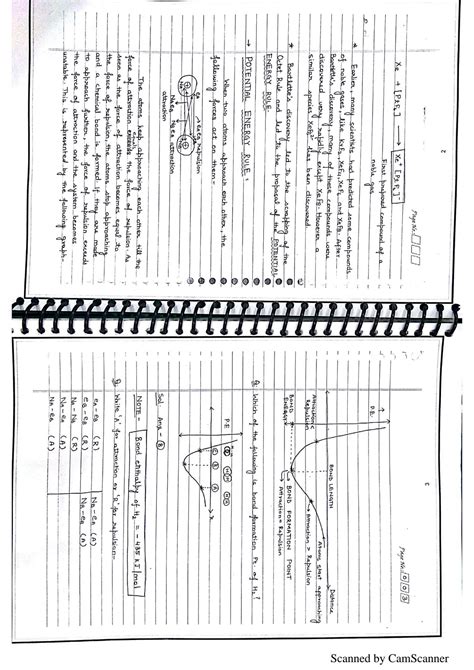 Page No. 
2
Xe + [PtF6] → Xe+ [PtF6]-
First proposed compound of a
noble gas
* Earlier, many scientists had predicted some compounds
of noble gases like KrF2, XeF4, XeF6 and XeF8. After
Bartlett's discovery, many of these compounds were
discovered very rapidly except XeF8. However a
similar species XeF8²⁻ has been discovered.
* Bartlett's discovery led to the scrapping of the
Octet Rule and led to the proposal of the POTENTIAL
ENERGY RULE
→ POTENTIAL ENERGY RULE:
When two atoms approach each other, the
following forces act on them:-
repulsion
attraction
attraction
The atoms keep approaching each other till the
force of attraction exceeds the force of repulsion. As
soon as the force of attraction becomes equal to
the force of repulsion, the atoms stop approaching
and a chemical bond is formed. If they are made
to approach further, the force of repulsion exceeds
the force of attraction and the system becomes
unstable. This is represented by the following graph-
Page No. 003
3
P.E.
BOND LENGTH
Distance
Atoms start approaching
Attraction > Repulsion
Attraction<
Repulsion
BOND
ENERGY
BOND FORMATION POINT
Attraction = Repulsion
Q. Which of the following is bond formation Pt. of H2?
P.E
Sol. Ans - B
NOTE - Bond enthalpy of H2 = - 435 kJ/mol
Q. Write 'A' for attraction or 'R' for repulsion-
eA - eB (R)
eB - eB (R)
NA - NB (R)
NB - eA (A)
NA - eB (A)
NA - eA (A)
Scanned by CamScanner